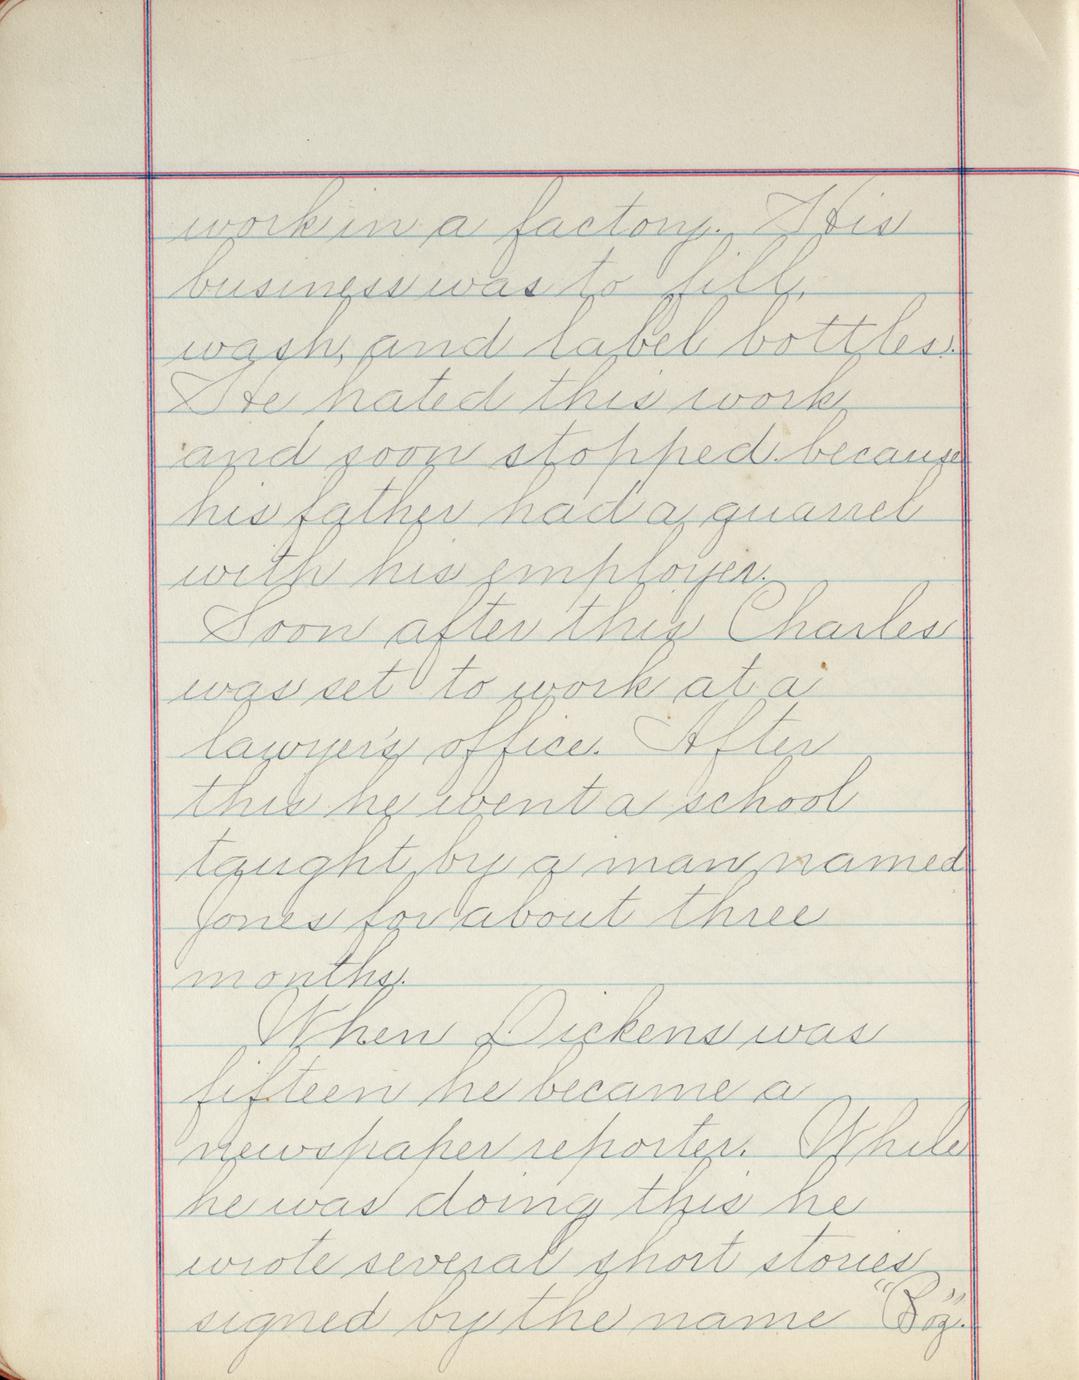 work in a factory. His
business was to fill,
wash, and label bottles.
He hated this work
and soon stopped because
his father had a quarrel
with his employer.
Soon after this Charles
was set to work at a
lawyer's office. After
this he went a school
taught by a man named
Jones for about three
months.
When Dickens was
fifteen he became a
newspaper reporter. While
he was doing this he
wrote several short stories
signed by the name "Boz".